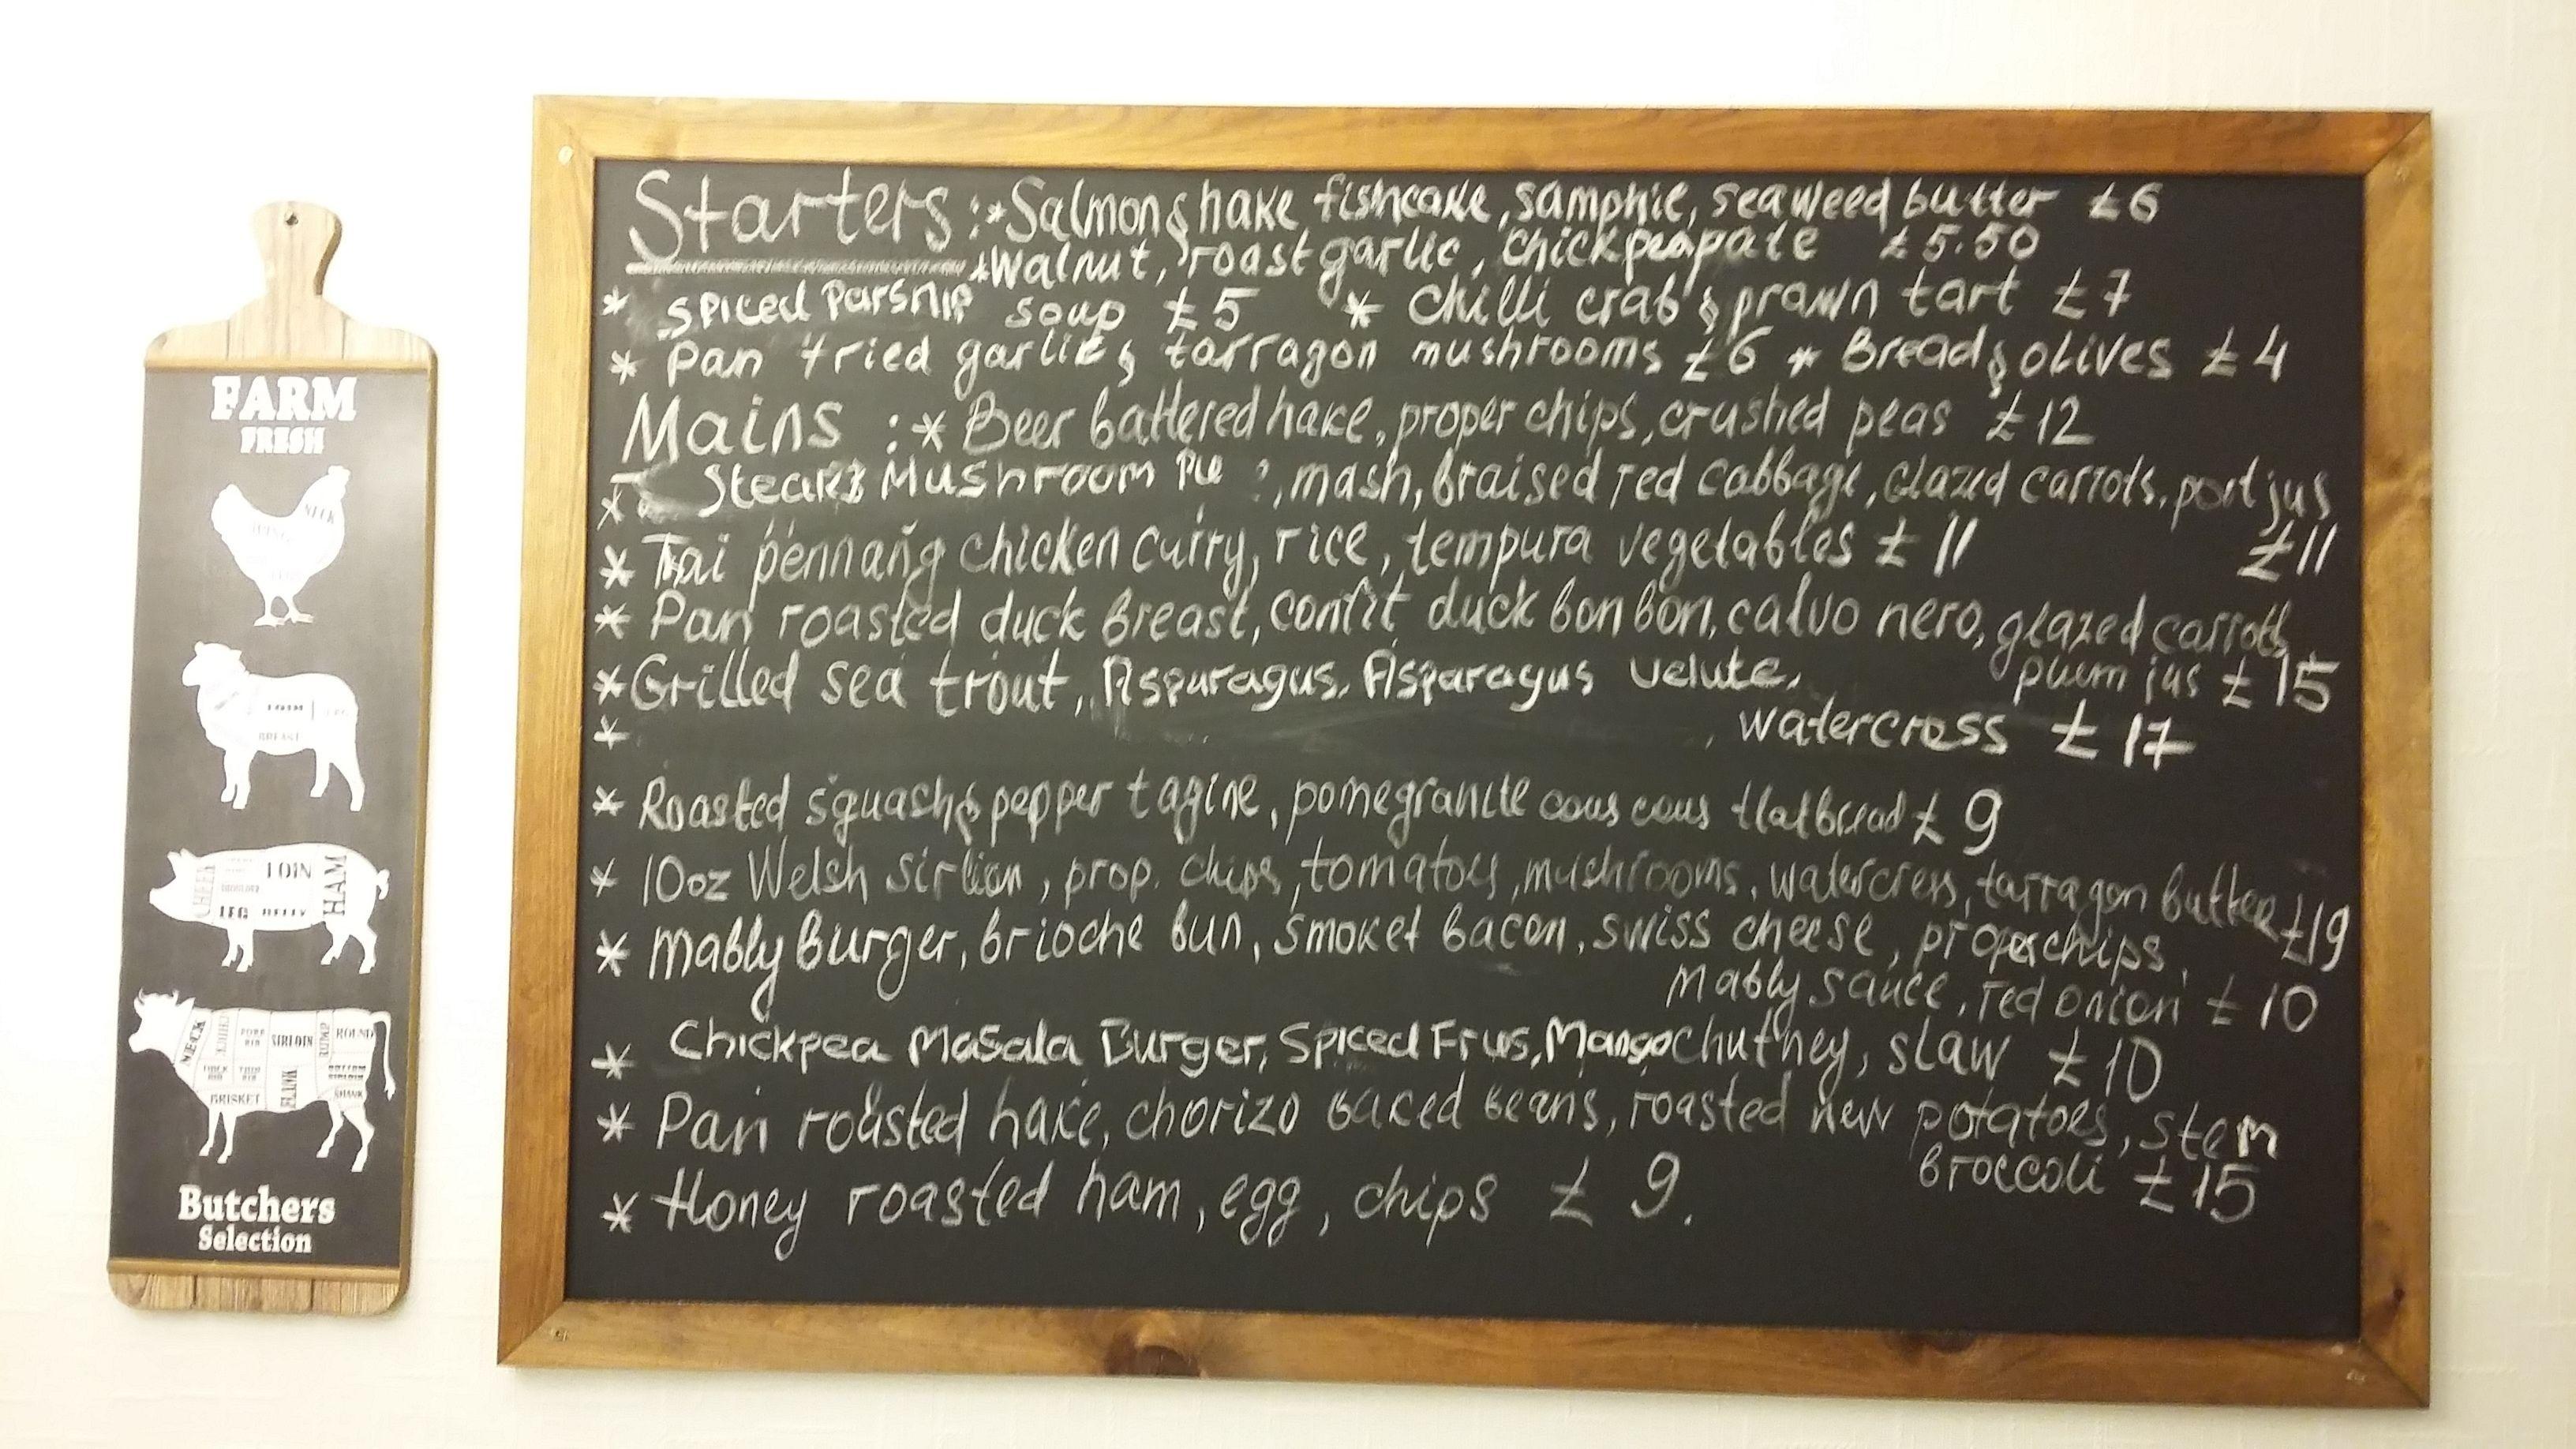 FARM
FRESH
NECK
LOIN
BREAST
LOIN
HAM
LEG BELLY
NECK
SIRLOIN
RUMP
ROUND
FLANK
BRISKET
SHANK
Butchers
Selection
Starters :*Salmon & hake fishcake, samphie, seaweed butter £6
*Walnut, roast garlic, chickpea pate £5.50
* Spiced Parsnip soup £5 * Chilli crab & prawn tart £7
* Pan fried garlic & tarragon mushrooms £6 * Bread & olives £4
Mains :* Beer battered hake, proper chips, crushed peas £12
* Steak & Mushroom Pie, mash, braised red cabbage, glazed carrots, port jus
£11
* Tai pennang chicken curry, rice, tempura vegetables £11
* Pan roasted duck breast, confit duck bon bon, calvo nero, glazed carrots,
plum jus £15
*Grilled sea trout, Asparagus, Asparagus velute,
*
watercress £17
* Roasted squash & pepper tagine, pomegranite cous cous flatbread £9
* 10oz Welsh sirlion, prop. chips, tomatoes, mushrooms, watercress, tarragon butter £19
* Mably Burger, brioche bun, smoket bacon, swiss cheese, proper chips,
Mably sauce, red onion £10
* Chickpea Masala Burger, Spiced Fries, Mango chutney, slaw £10
* Pan roasted hake, chorizo baked beans, roasted new potatoes, stem
broccoli £15
* Honey roasted ham, egg, chips £9.